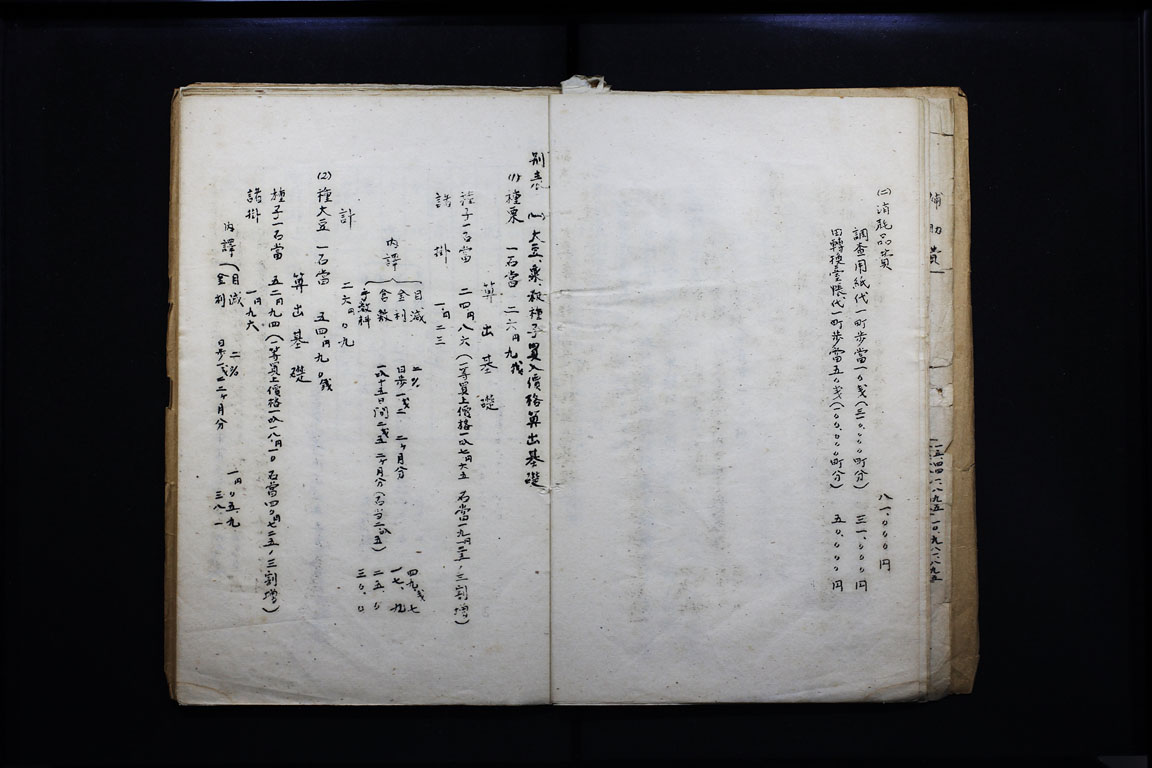 補助費
(二) 消耗品費 八一,〇〇〇円
調査用紙代一町歩當一〇戔(三一〇,〇〇〇町分) 三一,〇〇〇円
田轉換臺帳代一町歩當五〇戔(一〇〇,〇〇〇町分) 五〇,〇〇〇円
別表(一) 大豆、粟、穀種子買入價格算出基礎
(1) 種粟 一石當 二六円〇九戔
算出基礎
種子一石當 二四円八六(二等買上價格一叺七円六五 石當一九円一二五,三割增)
諸掛 一円二三
内譯
目減 二% 四九戔七
金利 日歩一戔二 二ヶ月分 一七.九
倉敷 一叺十五日間二戔五 二ヶ月分(石当二叺五) 二五.〇
手数料 三〇.〇
計 二六円〇九
(2) 種大豆 一石當 五四円九〇戔
算出基礎
種子一石當 五二円九四(二等買上價格一叺一八円一〇 石當四〇円七二五,三割增)
諸掛 一円九六
内譯
目減 二% 一円〇五.九
金利 日歩一戔二 二ヶ月分 三八.一